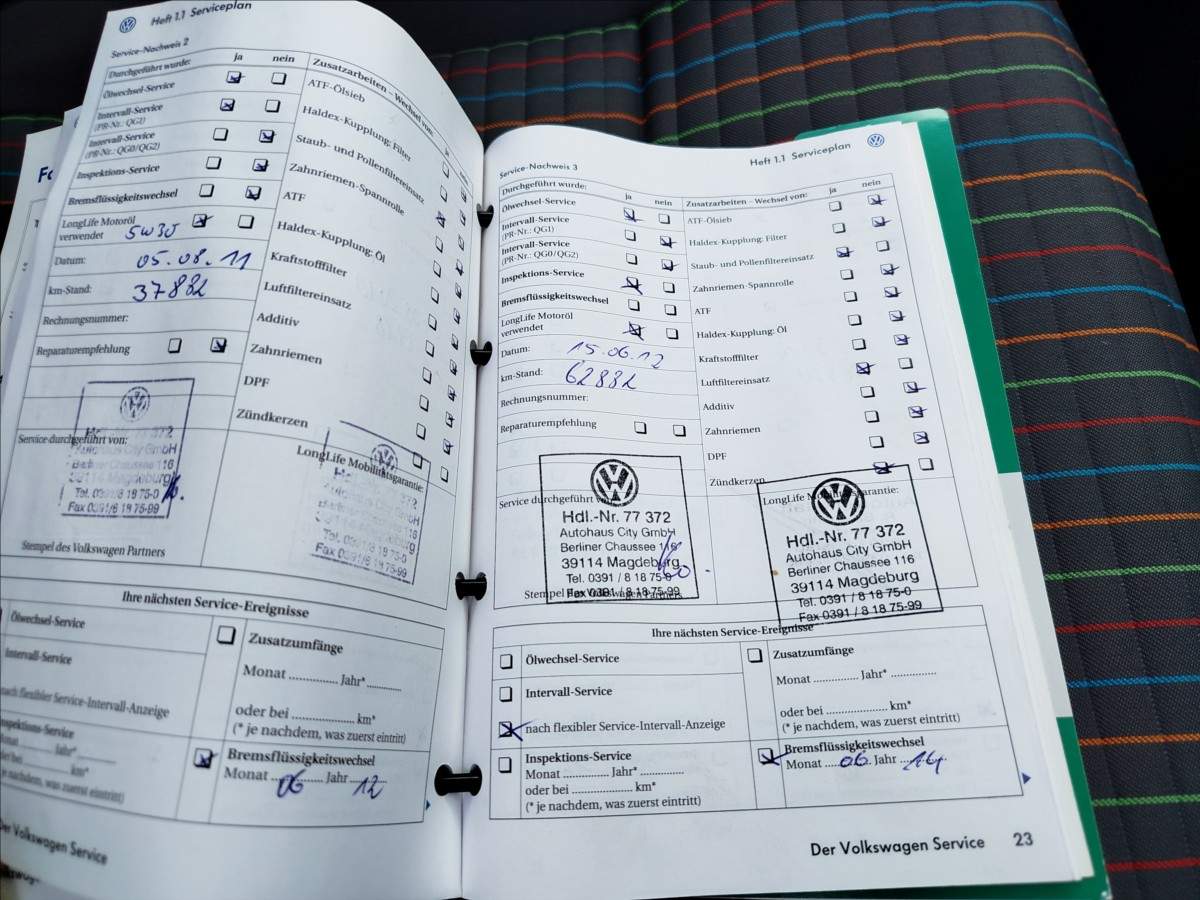 Heft 1.1 Serviceplan
Service-Nachweis 2
Durchgeführt wurde:
ja
nein
Zusatzarbeiten – Wechsel von:
Ölwechsel-Service
Intervall-Service
(PR-Nr.: QG1)
Intervall-Service
(PR-Nr.: QG0/QG2)
Inspektions-Service
Bremsflüssigkeitswechsel
LongLife Motoröl
verwendet 5W30
Datum: 05.08.11
km-Stand: 37882
Rechnungsnummer:
Reparaturempfehlung
ATF-Ölsieb
Haldex-Kupplung: Filter
Staub- und Pollenfiltereinsatz
Zahnriemen-Spannrolle
ATF
Haldex-Kupplung: Öl
Kraftstofffilter
Luftfiltereinsatz
Additiv
Zahnriemen
DPF
Zündkerzen
Service durchgeführt von:
LongLife Mobilitätsgarantie:
Hdl.-Nr. 77 372
Autohaus City GmbH
Berliner Chaussee 116
39114 Magdeburg
Tel. 0391/8 18 75-0
Fax 0391/8 18 75-99
Tel. 0391/8 18 75-0
Fax 0391/8 18 75-99
Stempel des Volkswagen Partners
Ihre nächsten Service-Ereignisse
Ölwechsel-Service
Intervall-Service
nach flexibler Service-Intervall-Anzeige
Inspektions-Service
Monat .......... Jahr* ..........
km*
(* je nachdem, was zuerst eintritt)
Zusatzumfänge
Monat .............. Jahr* ..........
oder bei .................. km*
(* je nachdem, was zuerst eintritt)
Bremsflüssigkeitswechsel
Monat 06 Jahr 12
Der Volkswagen Service
Service-Nachweis 3
Heft 1.1 Serviceplan
Durchgeführt wurde:
ja
nein
Zusatzarbeiten – Wechsel von:
ja
nein
Ölwechsel-Service
Intervall-Service
(PR-Nr.: QG1)
Intervall-Service
(PR-Nr.: QG0/QG2)
Inspektions-Service
Bremsflüssigkeitswechsel
LongLife Motoröl
verwendet
Datum: 15.06.12
km-Stand: 62882
Rechnungsnummer:
Reparaturempfehlung
ATF-Ölsieb
Haldex-Kupplung: Filter
Staub- und Pollenfiltereinsatz
Zahnriemen-Spannrolle
ATF
Haldex-Kupplung: Öl
Kraftstofffilter
Luftfiltereinsatz
Additiv
Zahnriemen
DPF
Zündkerzen
Service durchgeführt von:
LongLife Mobilitätsgarantie:
Hdl.-Nr. 77 372
Autohaus City GmbH
Berliner Chaussee 116
39114 Magdeburg
Tel. 0391 / 8 18 75-0
Fax 0391 / 8 18 75-99
Hdl.-Nr. 77 372
Autohaus City GmbH
Berliner Chaussee 116
39114 Magdeburg
Tel. 0391 / 8 18 75-0
Fax 0391 / 8 18 75-99
Stempel des Volkswagen Partners
Ihre nächsten Service-Ereignisse
Ölwechsel-Service
Intervall-Service
nach flexibler Service-Intervall-Anzeige
Inspektions-Service
Monat .............. Jahr* ..............
oder bei .................. km*
(* je nachdem, was zuerst eintritt)
Zusatzumfänge
Monat .............. Jahr* ..............
oder bei .................. km*
(* je nachdem, was zuerst eintritt)
Bremsflüssigkeitswechsel
Monat 06 Jahr 14
Der Volkswagen Service 23